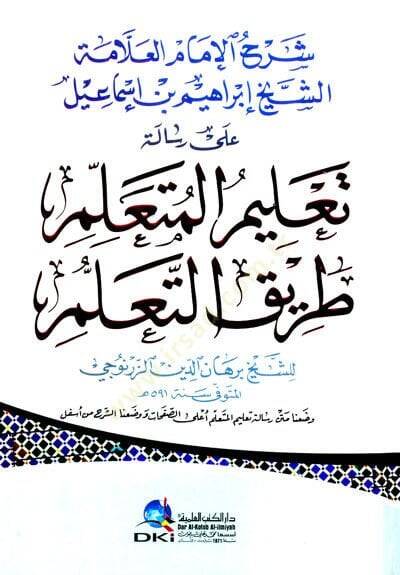 شرح الإمام العلامة
الشيخ إبراهيم بن إسماعيل
على رسالة
تعليم المتعلم
طريق التعلم
للشيخ برهان الدين الزرنوجي
المتوفى سنة ٥٩١ هـ
وضعنا متن رسالة تعليم المتعلم أعلى الصفحات ووضعنا الشرح من أسفل
دار الكتب العلمية
Dar Al-Kotob Al-ilmiyah
DKi